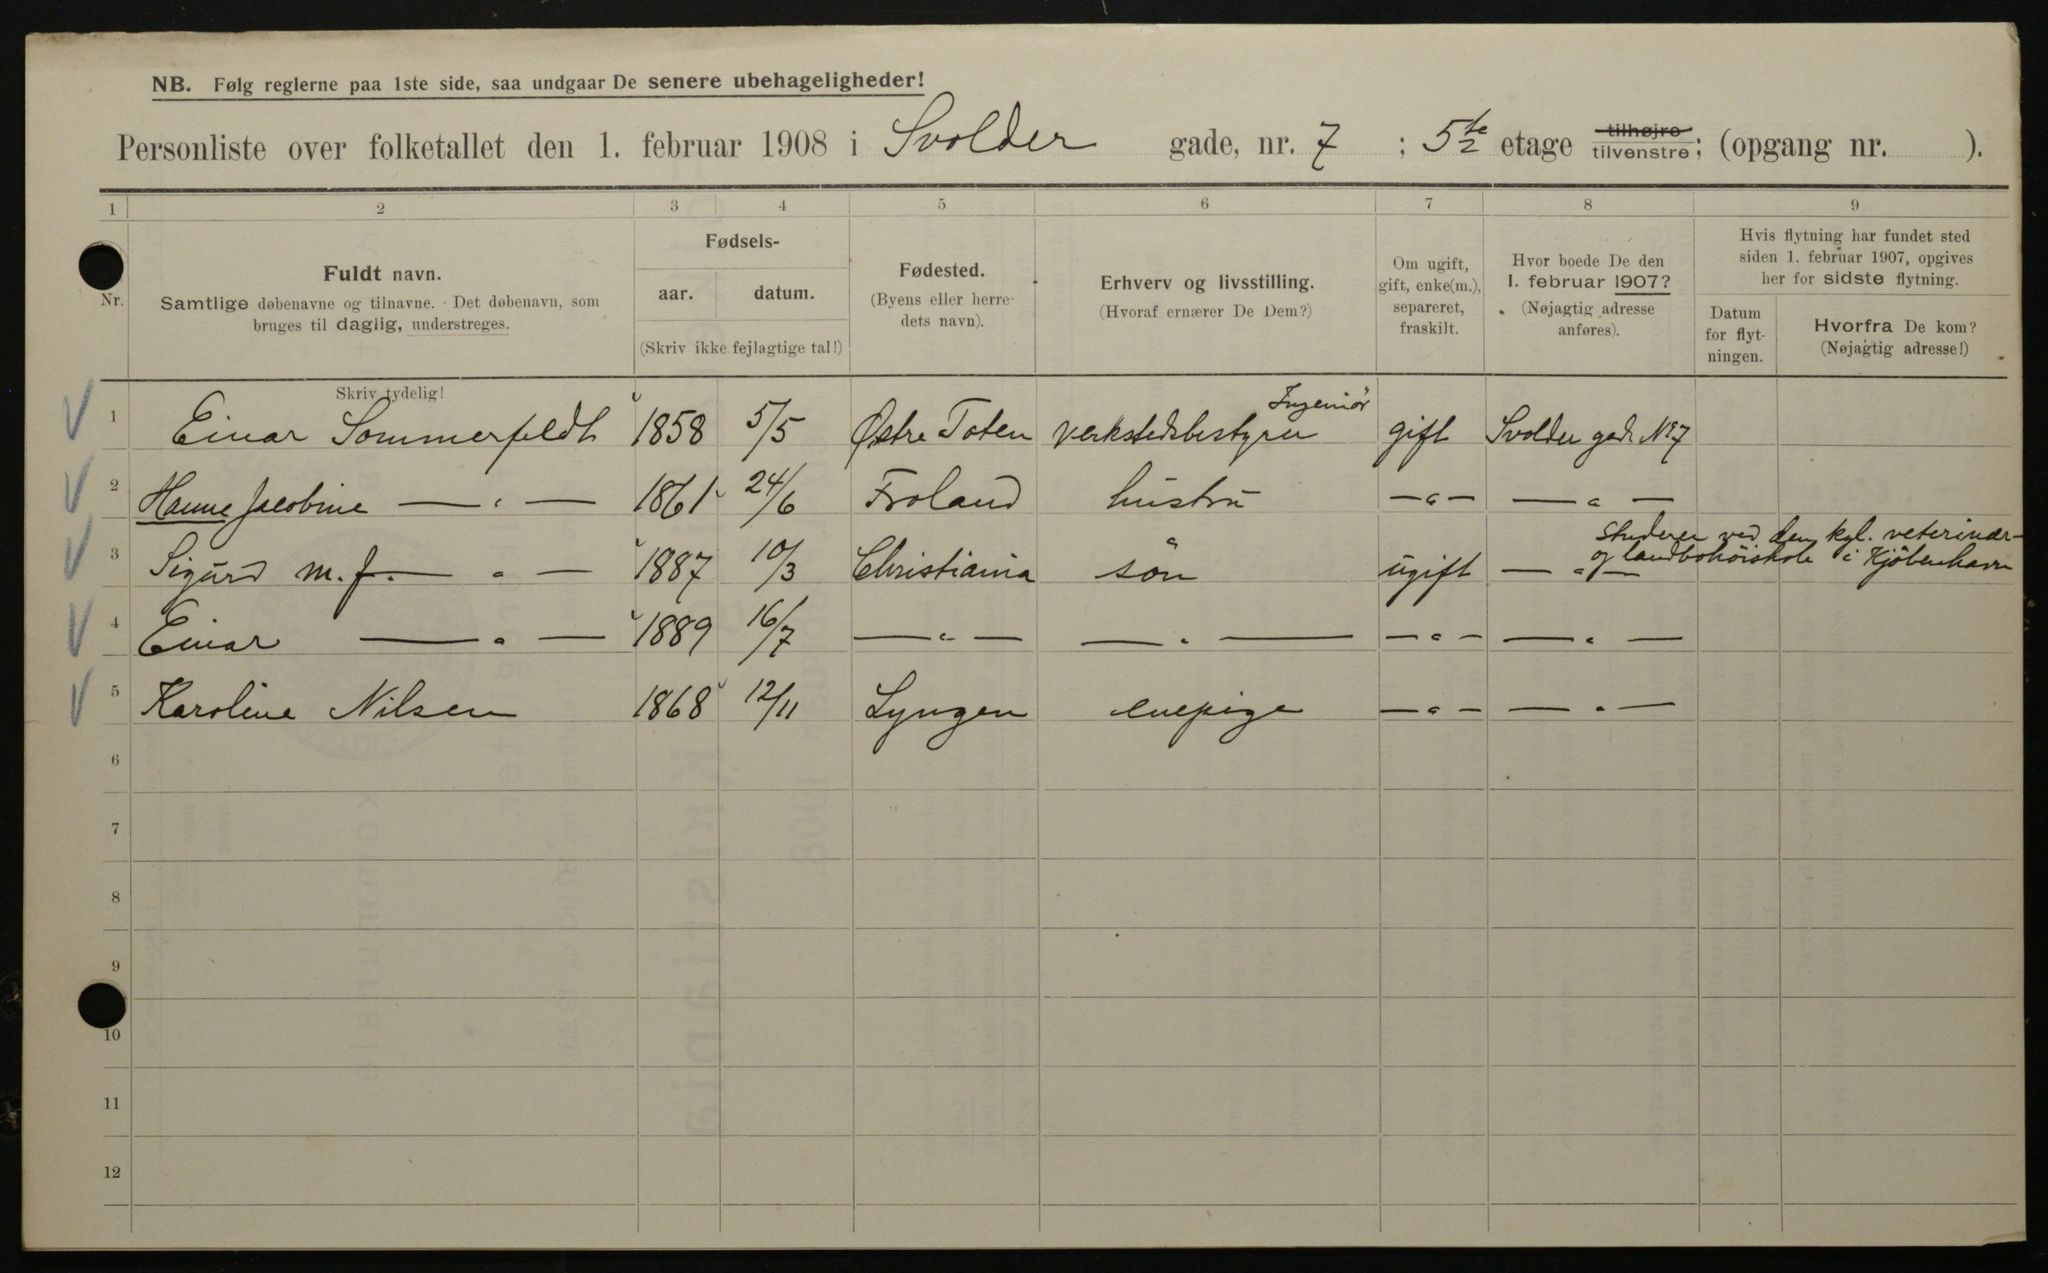 NB. Følg reglerne paa 1ste side, saa undgaar De senere ubehageligheder!
Personliste over folketallet den 1. februar 1908 i Svolder gade, nr. 7 ; 5te etage tilhøjre tilvenstre; (opgang nr. ).
1 2 3 4 5 6 7 8 9
Nr.
Fuldt navn.
Samtlige døbenavne og tilnavne. Det døbenavn, som
bruges til daglig, understreges.
Skriv tydelig!
Fødsels-
aar. datum.
(Skriv ikke fejlagtige tal!)
Fødested.
(Byens eller herre-
dets navn).
Erhverv og livsstilling.
(Hvoraf ernærer De Dem?)
Om ugift,
gift, enke(m.),
separeret,
fraskilt.
Hvor boede De den
1. februar 1907?
(Nøjagtig adresse
anføres).
Hvis flytning har fundet sted
siden 1. februar 1907, opgives
her for sidste flytning.
Datum
for flyt-
ningen.
Hvorfra De kom?
(Nøjagtig adresse!)
Ingeniör
1 Einar Sommerfeldt 1858 5/5 Østre Toten verkstedsbestyrer gift Svolder gade No 7
2 Hanne Jacobine — " — 1861 24/6 Froland hustru — " — — " —
studerer ved den kgl. veterinær-
og landbohöiskole i Kjöbenhavn
3 Sigurd m. f. — " — 1887 10/3 Christiania sön ugift — " —
4 Einar — " — 1889 16/7 — " — — " — — " — — " —
5 Karoline Nilsen 1868 12/11 Lyngen enepige — " — — " —
6
7
8
9
10
11
12